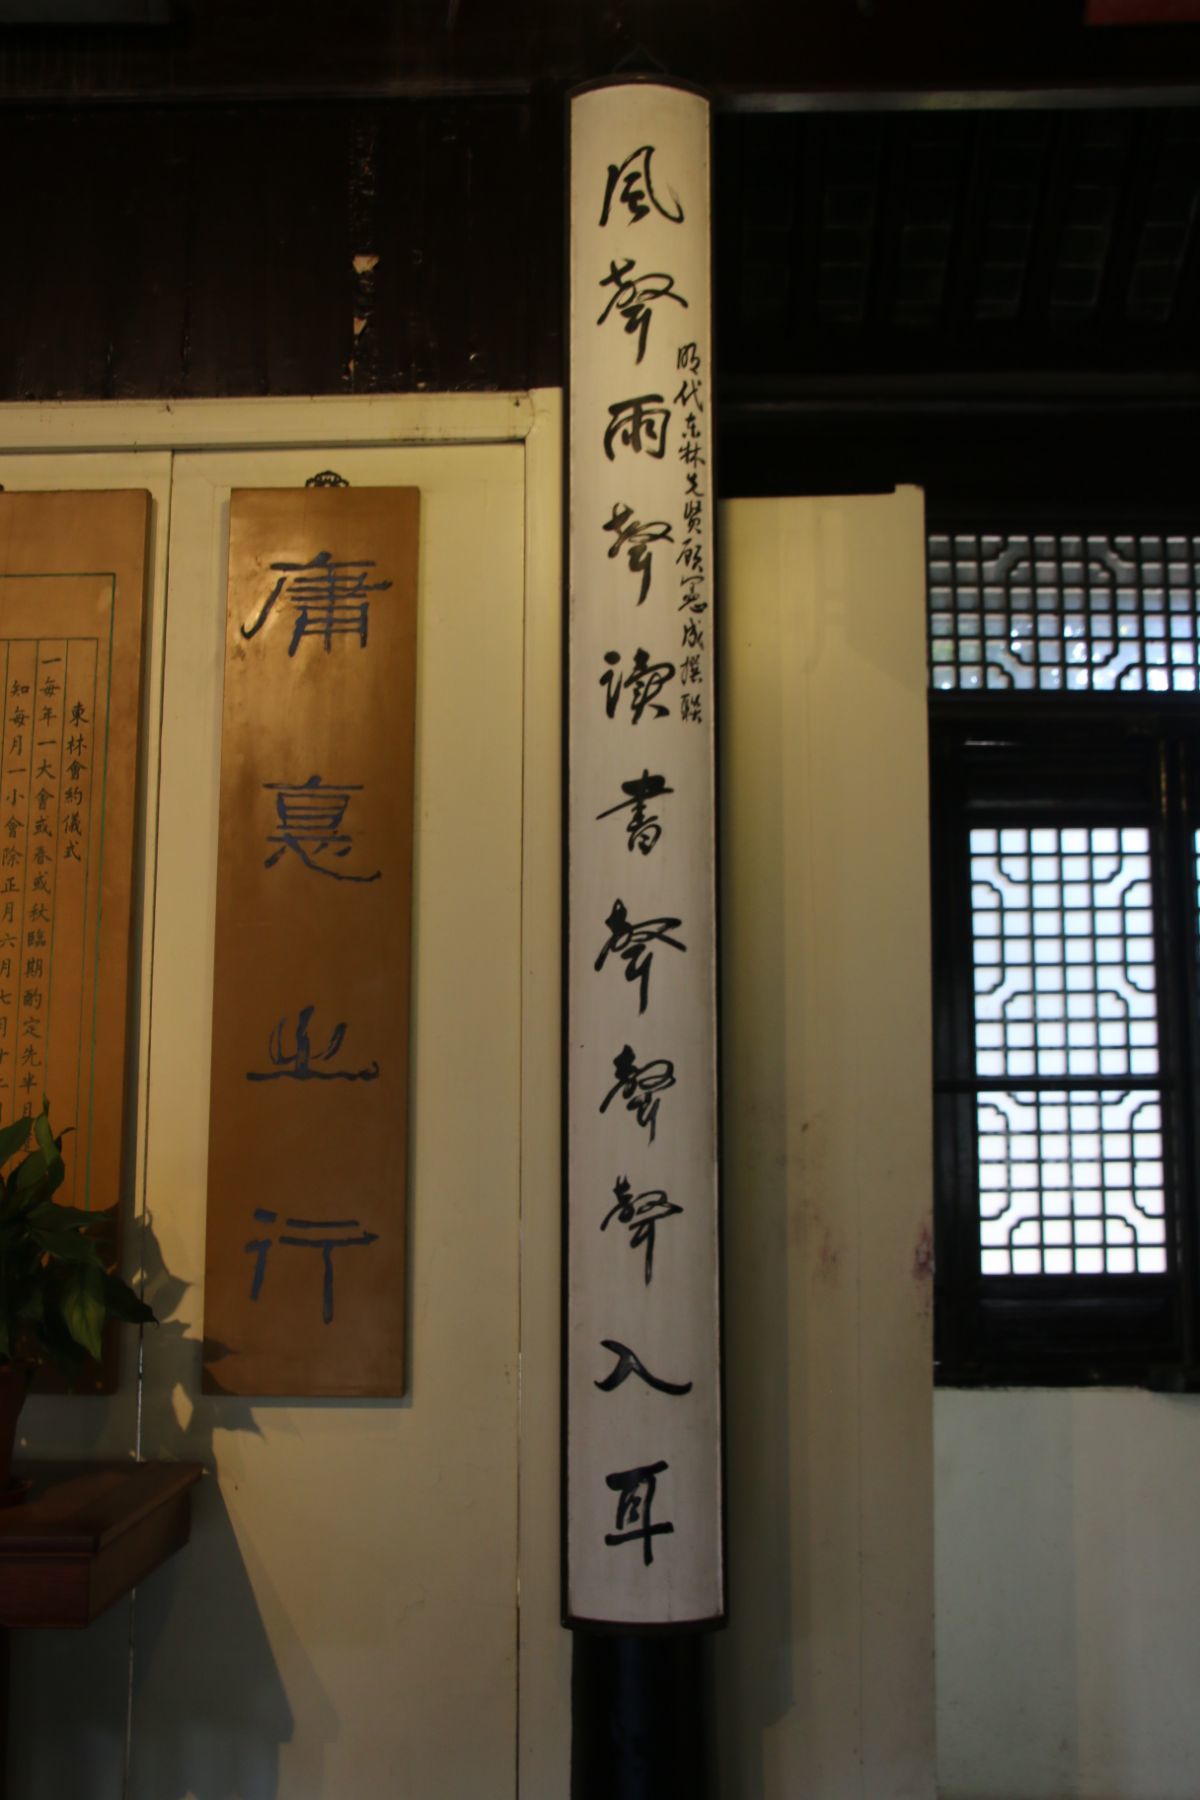 風聲雨聲讀書聲聲聲入耳
明代东林先贤顾宪成撰联
庸悳之行
東林會約儀式
一每年一大會或春或秋臨期酌定先半月
知每月一小會除正月六月七月十二月